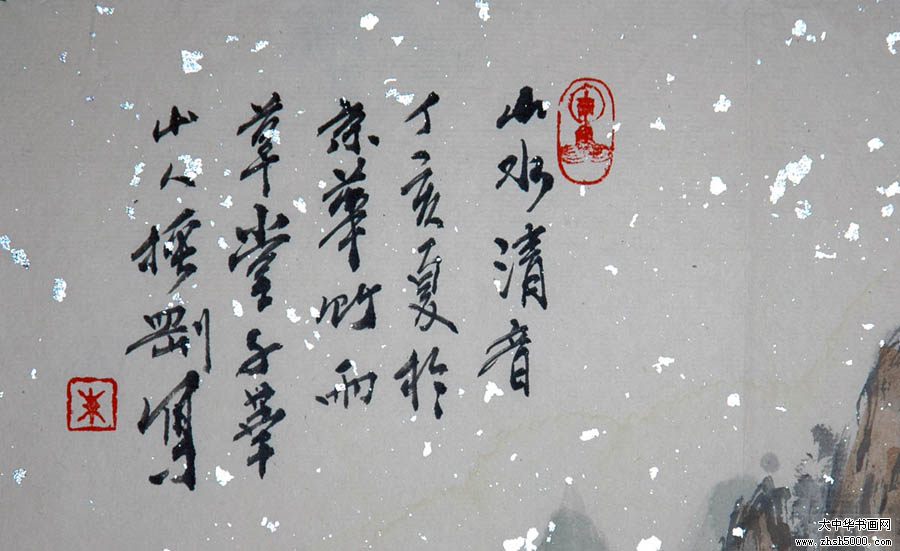 山水清音
丁亥夏於
京華竹雨
草堂千華
山人振剛寫
大中华书画网
www.zhsh5000.com